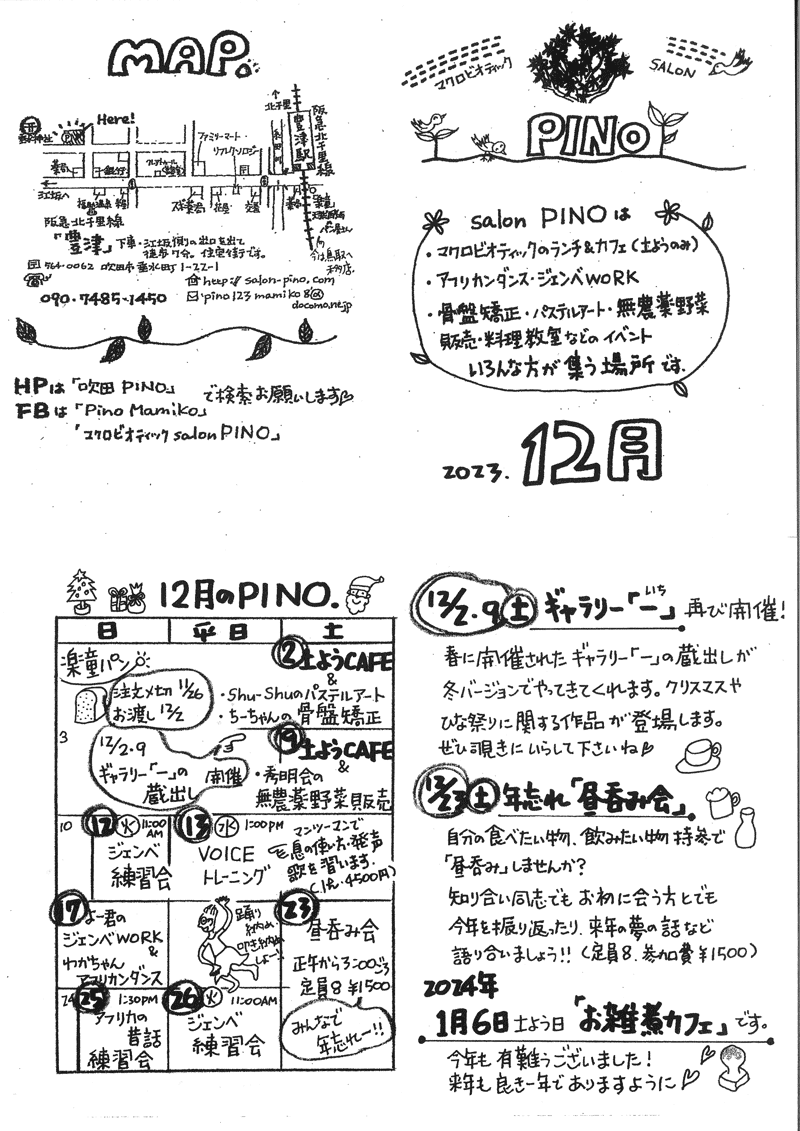 MAP.
Here!
PINO
ファミリーマート
リフレクソロジー
北千里
豊津駅
阪急北千里線
江坂へ
阪急北千里線
「豊津」下車・江坂側の出口を出て
徒歩7分。住宅街です。
〒564-0062 吹田市垂水町1-22-1
http://salon-pino.com
090-7485-1450
pino123mamiko8@
docomo.ne.jp
HPは「吹田 PINO」
で検索お願いします
FBは「Pino Mamiko」
「マクロビオティック salon PINO」
マクロビオティック
SALON
PINO
salon PINOは
・マクロビオティックのランチ&カフェ(土ようのみ)
・アフリカンダンス・ジェンベWORK
・骨盤矯正・パステルアート・無農薬野菜
販売・料理教室などのイベント
いろんな方が集う場所です.
2023. 12月
12月のPINO.
日 平日 土
楽童パン
注文〆切 11/26
お渡し 12/2
② 土ようCAFE
&
・Shu-Shuのパステルアート
・ちーちゃんの骨盤矯正
3
12/2・9
ギャラリー「一」の
蔵出し
開催
⑨ 土ようCAFE
&
・秀明会の
無農薬野菜販売
10
⑫ 火 11:00AM
ジェンベ
練習会
⑬ 水 1:00PM
VOICE
トレーニング
マンツーマンで
息の使い方・発声
歌を習います.
(1名・4500円)
⑰ よー君の
ジェンベWORK
&
わかちゃん
アフリカンダンス
踊り
納め
叩き納め
しよー!
㉓
昼呑み会
正午から3:00ごろ
定員8 ¥1500
みんなで
年忘れー!!
24
㉕ 1:30PM
アフリカの
昔話
練習会
㉖ 火 11:00AM
ジェンベ
練習会
12/2・9 土 ギャラリー「一」再び開催!
いち
春に開催されたギャラリー「一」の蔵出しが
冬バージョンでやってきてくれます。クリスマスや
ひな祭りに関する作品が登場します。
ぜひ覗きにいらして下さいね
12/23 土 年忘れ「昼呑み会」.
自分の食べたい物、飲みたい物持参で
「昼呑み」しませんか?
知り合い同志でもお初に会う方とでも
今年を振り返ったり、来年の夢の話など
語り合いましょう!!(定員8.参加費¥1500)
2024年
1月6日土よう日「お雑煮カフェ」です。
今年も有難うございました!
来年も良き一年でありますように